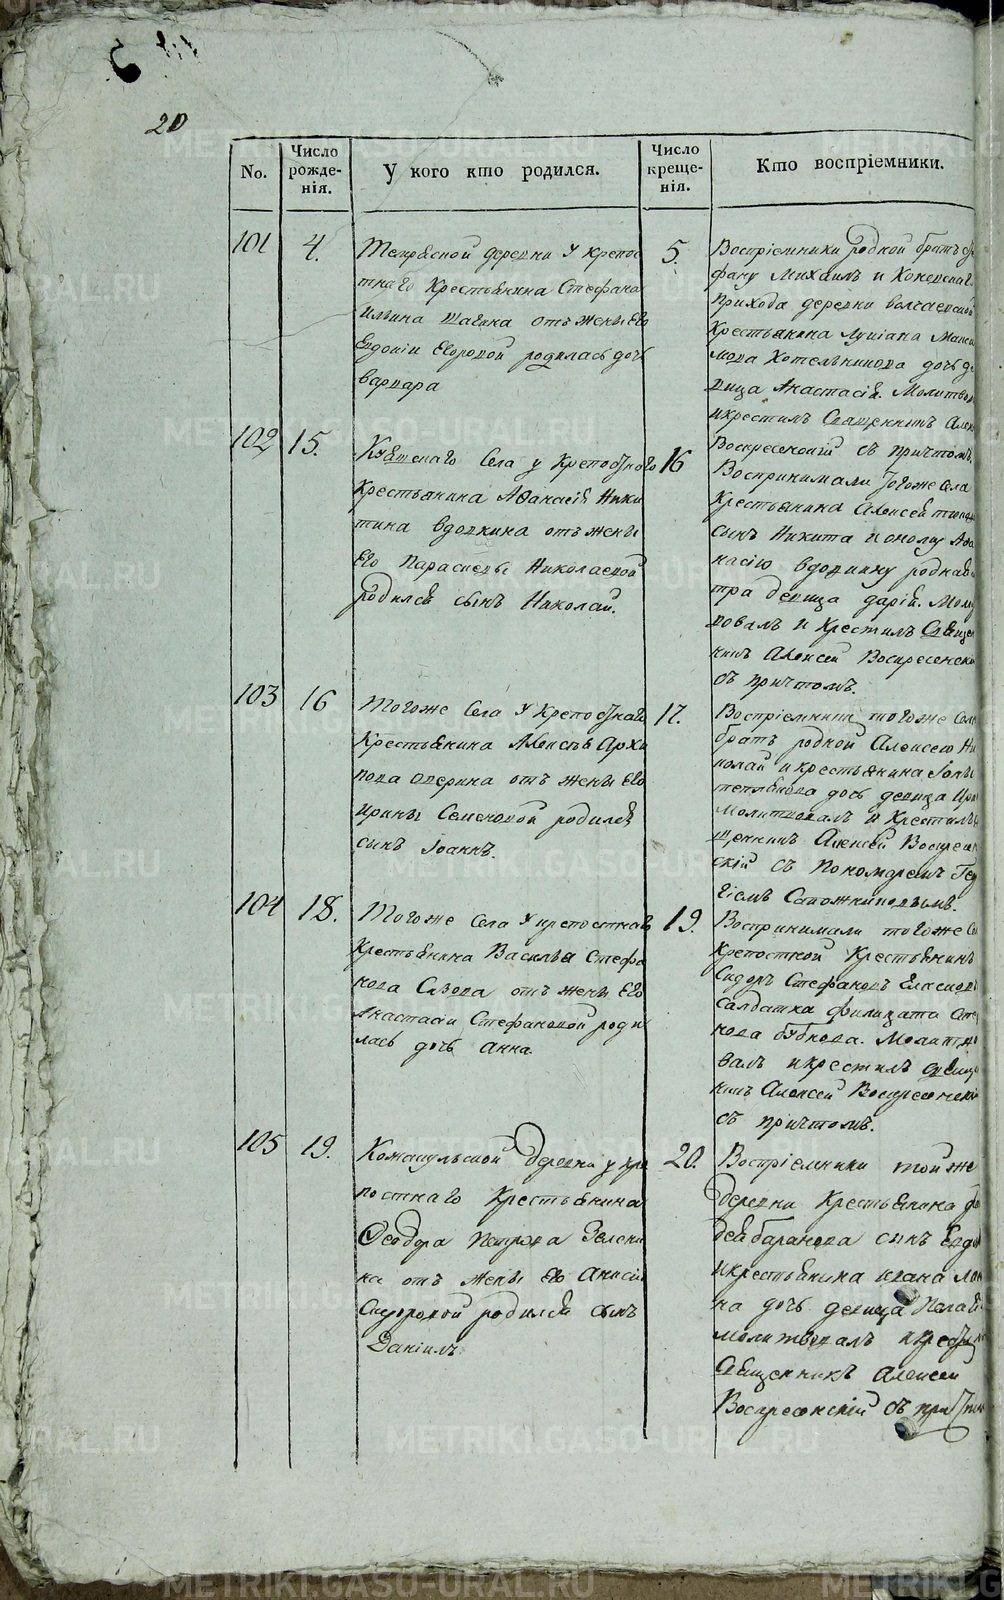 20
No.
Число рожде-
нія.
У кого кто родился.
Число креще-
нія.
Кто воспріемники.
101
4.
деревни У крепос
тнаго Крестьянина Стефана
Ильина отъ жены Его
Евдокіи Егоровой родилась дочь
варвара
5.
Воспріемники родной братъ Сте
фану Михаилъ и
прихода деревни
Крестьянина Луціана Макси
мова Котельникова дочь де
вица Анастасія. Молитво
икрестилъ Священникъ Алек
Воскресенскій съ причтомъ.
102
15.
Села у Крепостнаго
Крестьянина Афанасія Ники
тина вдовкина отъ жены
Его Параскевы Николаевой
родился сынъ Николай.
16
Воспринимали тогоже села
Крестьянина Алексей
сынъ Никита и оному Афа
насію вдовкину родная
тра девица дарія. Моли
вовалъ и Крестилъ Священ
никъ Алексей Воскресенски
съ причтомъ.
103
16
Тогоже Села У Крепостнаго
Крестьянина Алексея Архи
пова отъ жены Его
ирины Семеновой родился
сынъ Іоаннъ.
17.
Воспріемники тогоже Села
братъ родной Алексею Ни
колай и крестьянина Іоны
дочь девица Ири
Молитвовалъ и Крестилъ
щенникъ Алексей Воскресен
скій съ Пономаремъ Геор
гіемъ Сапожниковымъ.
104
18.
Тогоже Села У крепостнаго
Крестьянина Василья Стефа
нова отъ жены Его
Анастасіи Стефановой роди
лась дочь анна.
19.
Воспринимали тогоже Се
крепостной Крестьянинъ
Сидоръ Стефановъ
Салдатка филицата Сте
нова бубнова. Молитво
валъ икрестилъ Священ
никъ Алексей Воскресенскій
съ причтомъ.
105
19.
деревни у кре
постнаго Крестьянина
Феодора Петрова Зелени
на отъ жены Его Анисіи
Сидоровой родился сынъ
Даніилъ
20.
Воспріемники тойже
Деревни Крестьянина
дея баранова сынъ
икрестьянина ивана
на дочь девица Пелагія
молитвовалъ икрестилъ
Священникъ алексей
Воскресенскій съ причтом